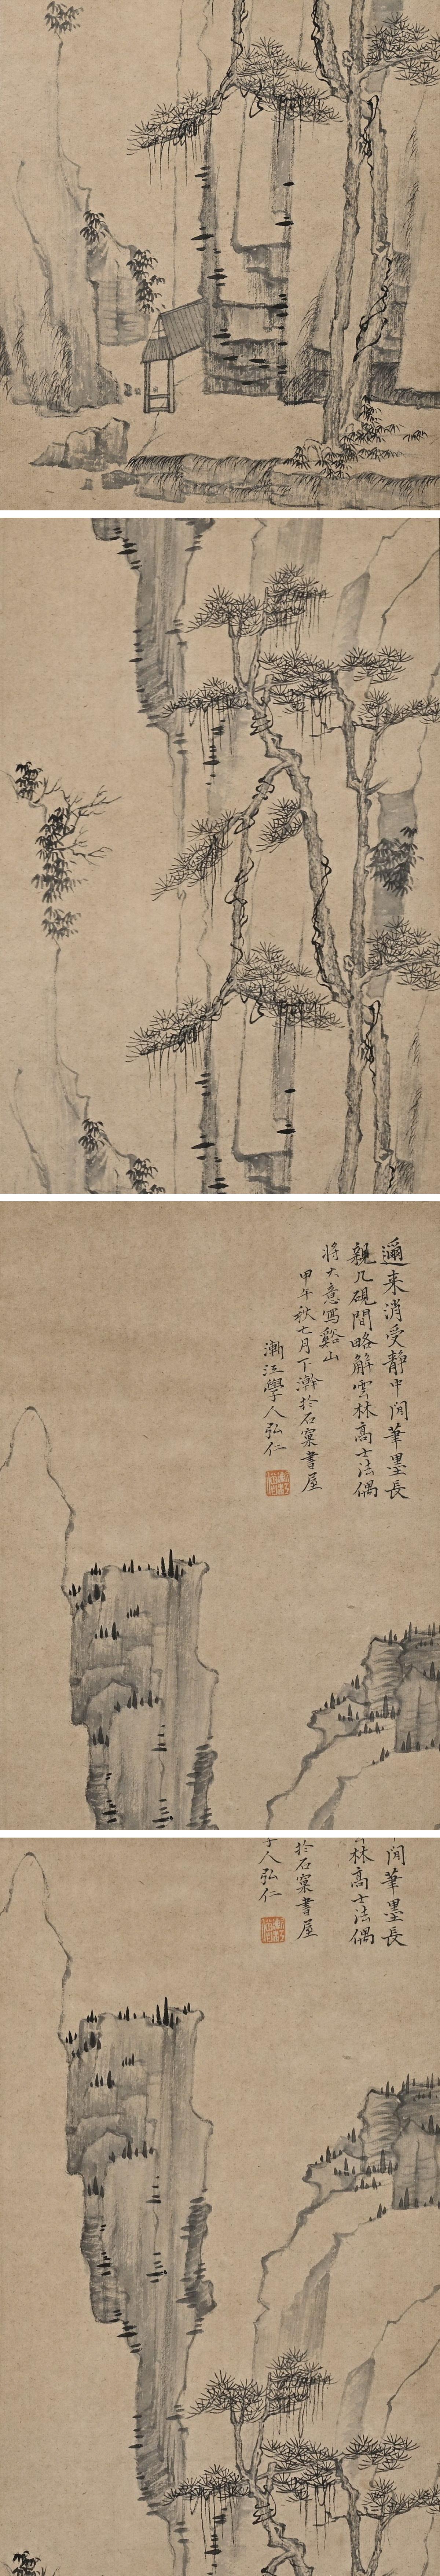 邇来消受靜中閒筆墨長
親几硯間略解雲林高士法偶
将大意寫谿山
甲午秋七月下澣於石窠書屋
漸江學人弘仁
閒筆墨長
林高士法偶
於石窠書屋
人弘仁